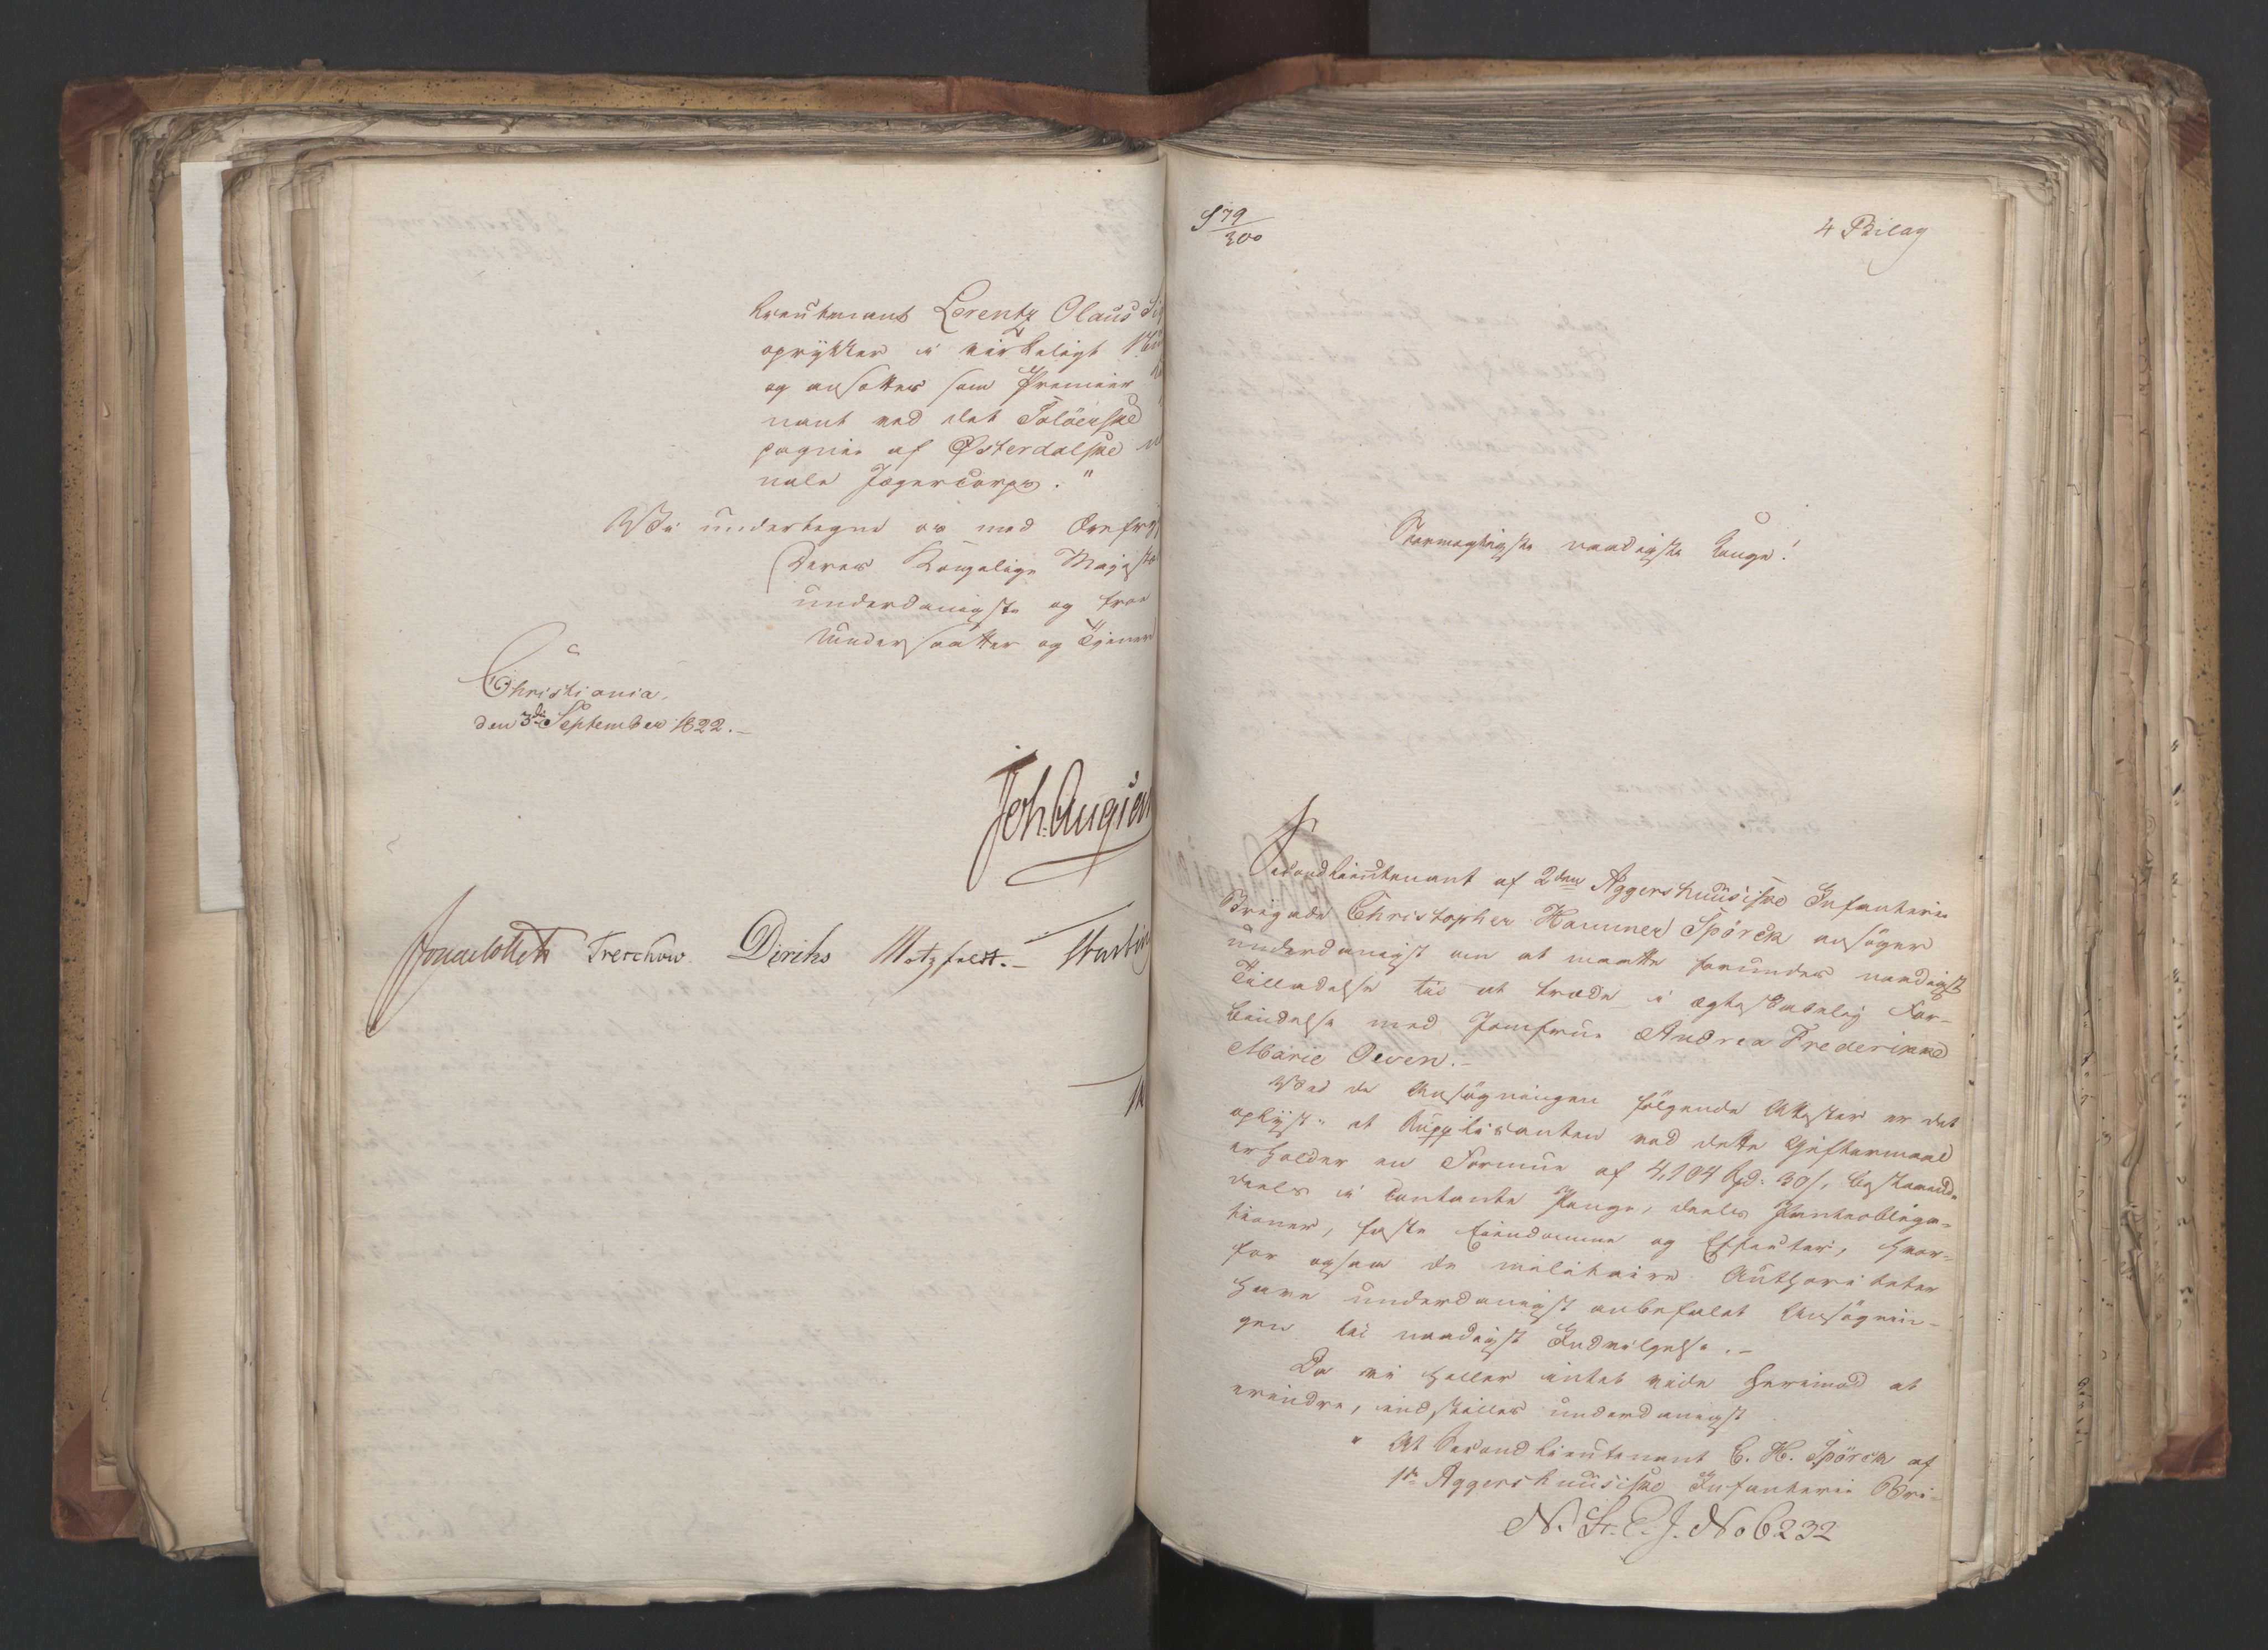 Lieutenant Lorentz Olaus
oprykker i virkeligt
og ansættes som Premier
nant ved det Tolgenske
pagnie af Østerdalske
nale Jægercorps."
Vi undertegne os med
Deres Kongelige
underdanigste og troe
Undersaatter og Tjenere
Christiania,
den 3die September 1822.
Treschow. Diriks Motzfeldt.
S 79
300
4 Bilag
Stormægtigste naadigste Konge!
Secondlieutenant af 2den Aggershuusiske Infanterie
Brigade Christopher Hammer Spörck ansøger
underdanigst om at maatte forundes naadigst
Tilladelse til at træde i ægteskabelig For-
bindelse med Jomfrue Andrea Frederikke
Marie Oeven.
Ved de Ansøgningen følgende Attester er det
oplyst, at Supplicanten ved dette Giftermaal
erholder en Formue af 4,104 Spd. 30 s, bestaaende
deels i contante Penge, deels Panteobliga-
tioner, faste Eiendomme og Effecter, hvor-
for ogsaa de militaire Authoriteter
have underdanigst anbefalet Ansøgnin-
gen til naadigst Indvilgelse.
Da vi heller intet vide herimod at
erindre, indstilles underdanigst
" At Secondlieutenant C. H. Spörck af
1ste Aggershuusiske Infanterie Bri-
N. St. E. J. No 6232